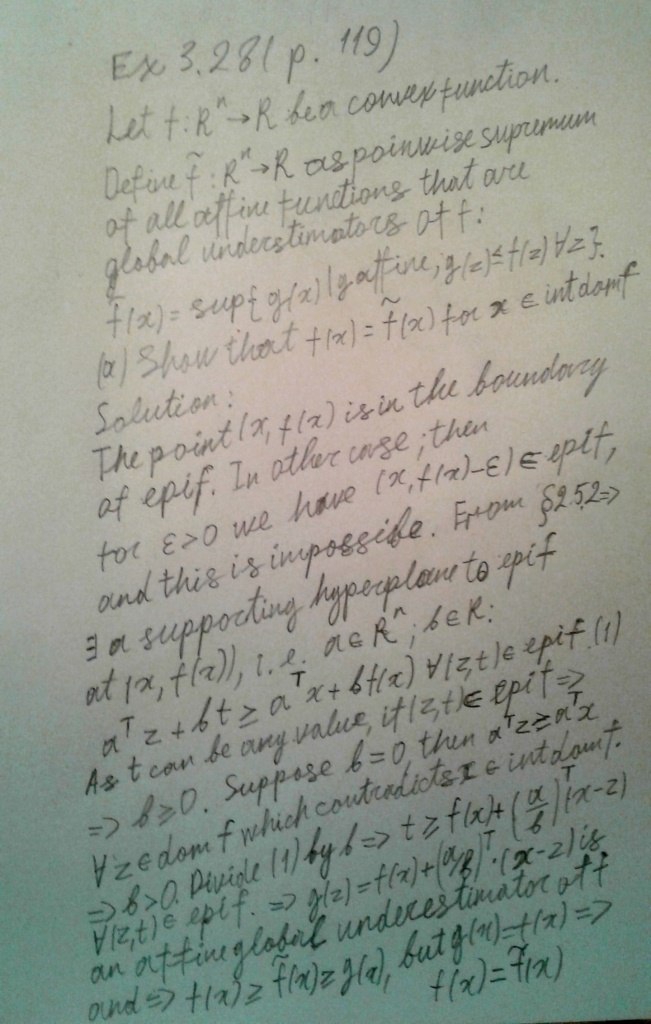 Ex 3.28( p. 119)
Let f: Rⁿ → R be a convex function.
Define f̃ : Rⁿ → R as poinwise supremum
of all affine functions that are
global understimators of f:
f̃(x) = sup{ g(x) | g affine, g(z) ≤ f(z) ∀z}.
(a) Show that f(x) = f̃(x) for x ∈ int dom f
Solution:
The point (x, f(x) is in the boundary
of epi f. In other case, then
for ε>0 we have (x, f(x)-ε) ∈ epi f,
and this is impossible. From §2.5.2 ⇒
∃ a supporting hyperplane to epi f
at (x, f(x)), i.e. a ∈ Rⁿ, b ∈ R:
aᵀz + bt ≥ aᵀx + bf(x) ∀(z,t) ∈ epi f. (1)
As t can be any value, if (z,t) ∈ epi f ⇒
⇒ b ≥ 0. Suppose b=0, then aᵀz ≥ aᵀx
∀z ∈ dom f which contradicts x ∈ int dom f.
⇒ b>0. Divide (1) by b ⇒ t ≥ f(x) + (a/b)ᵀ(x-z)
∀(z,t) ∈ epi f. ⇒ g(z) = f(x) + (a/b)ᵀ·(x-z) is
an affine global underestimator of f
and ⇒ f(x) ≥ f̃(x) ≥ g(x), but g(x) = f(x) ⇒
f(x) = f̃(x)